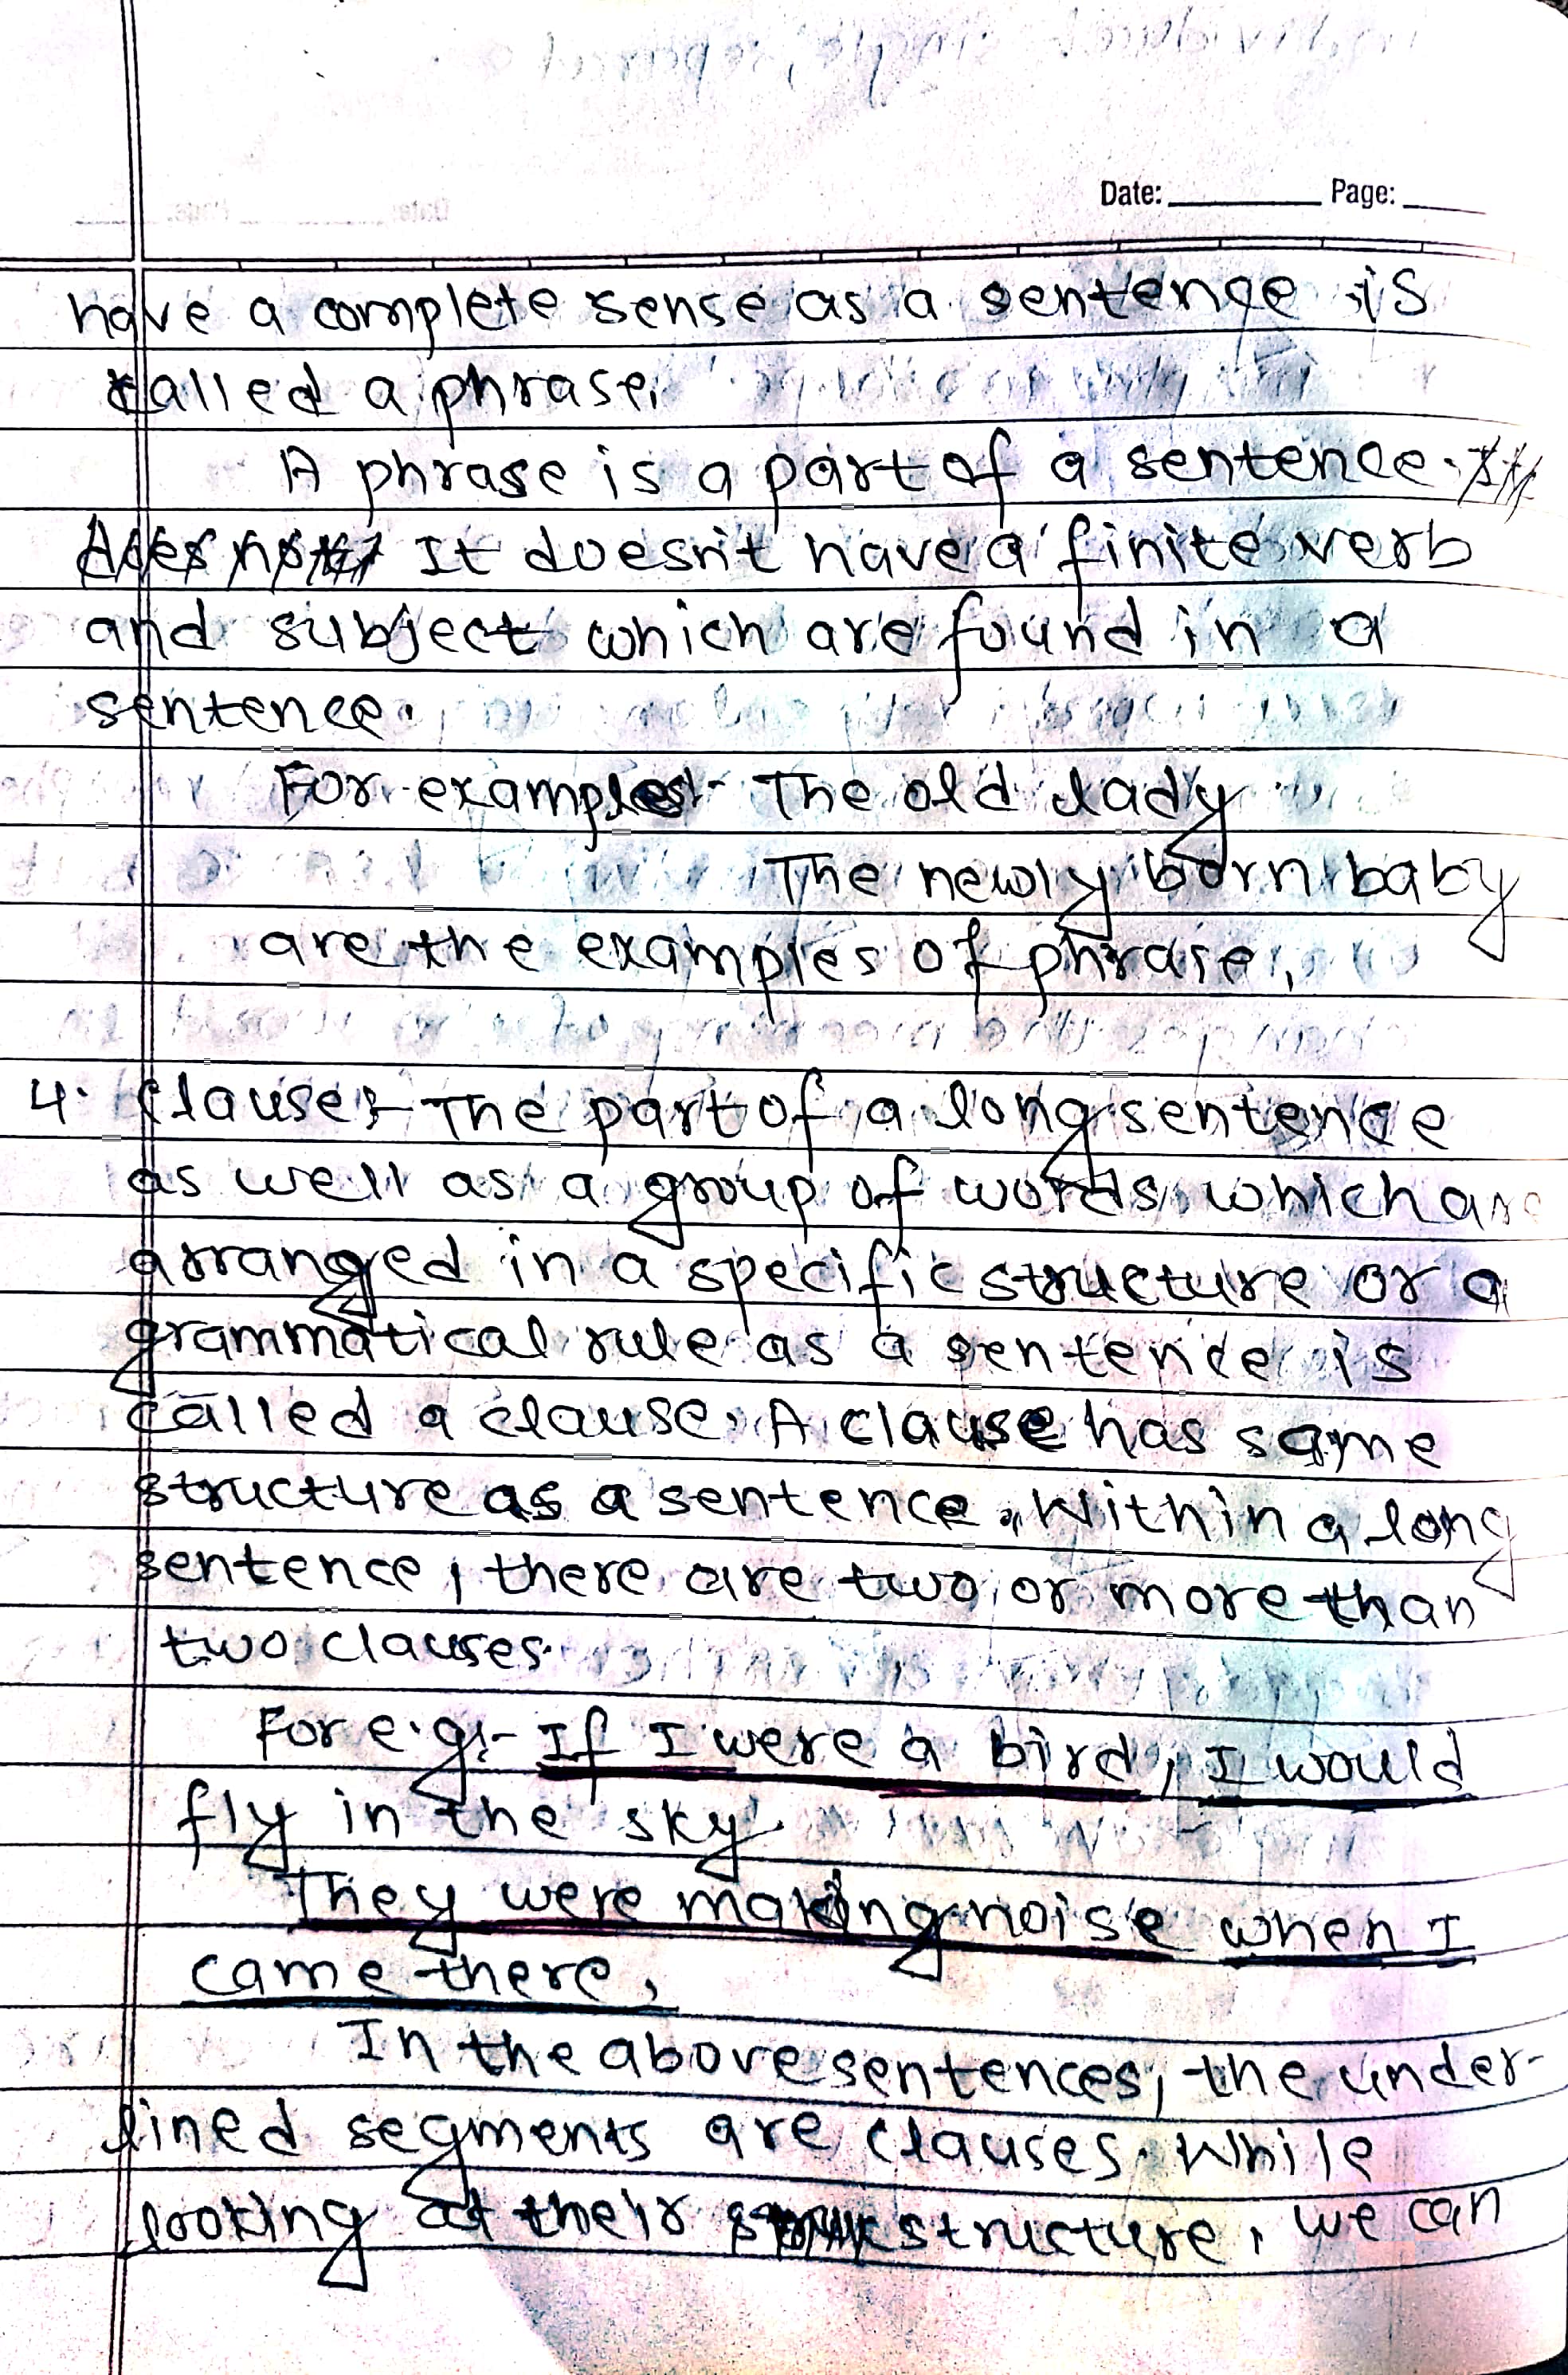 Date: Page:
have a complete sense as a sentence is
called a phrase.
A phrase is a part of a sentence.
It doesn't have a finite verb
and subject which are found in a
sentence.
For examples:- The old lady
The newly born baby
are the examples of phrase.
4. Clause:- The part of a long sentence
as well as a group of words which are
arranged in a specific structure or a
grammatical rule as a sentence is
called a clause. A clause has same
structure as a sentence. Within a long
sentence, there are two or more than
two clauses.
For e.g:- If I were a bird, I would
fly in the sky.
They were making noise when I
came there.
In the above sentences, the under-
lined segments are clauses. While
looking at their structure, we can